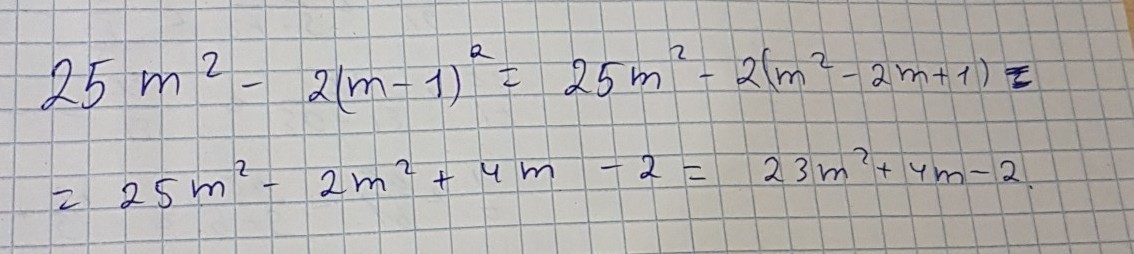 25 m² - 2(m-1)² = 25m² - 2(m² - 2m+1) =
= 25m² - 2m² + 4m - 2 = 23m² + 4m - 2.